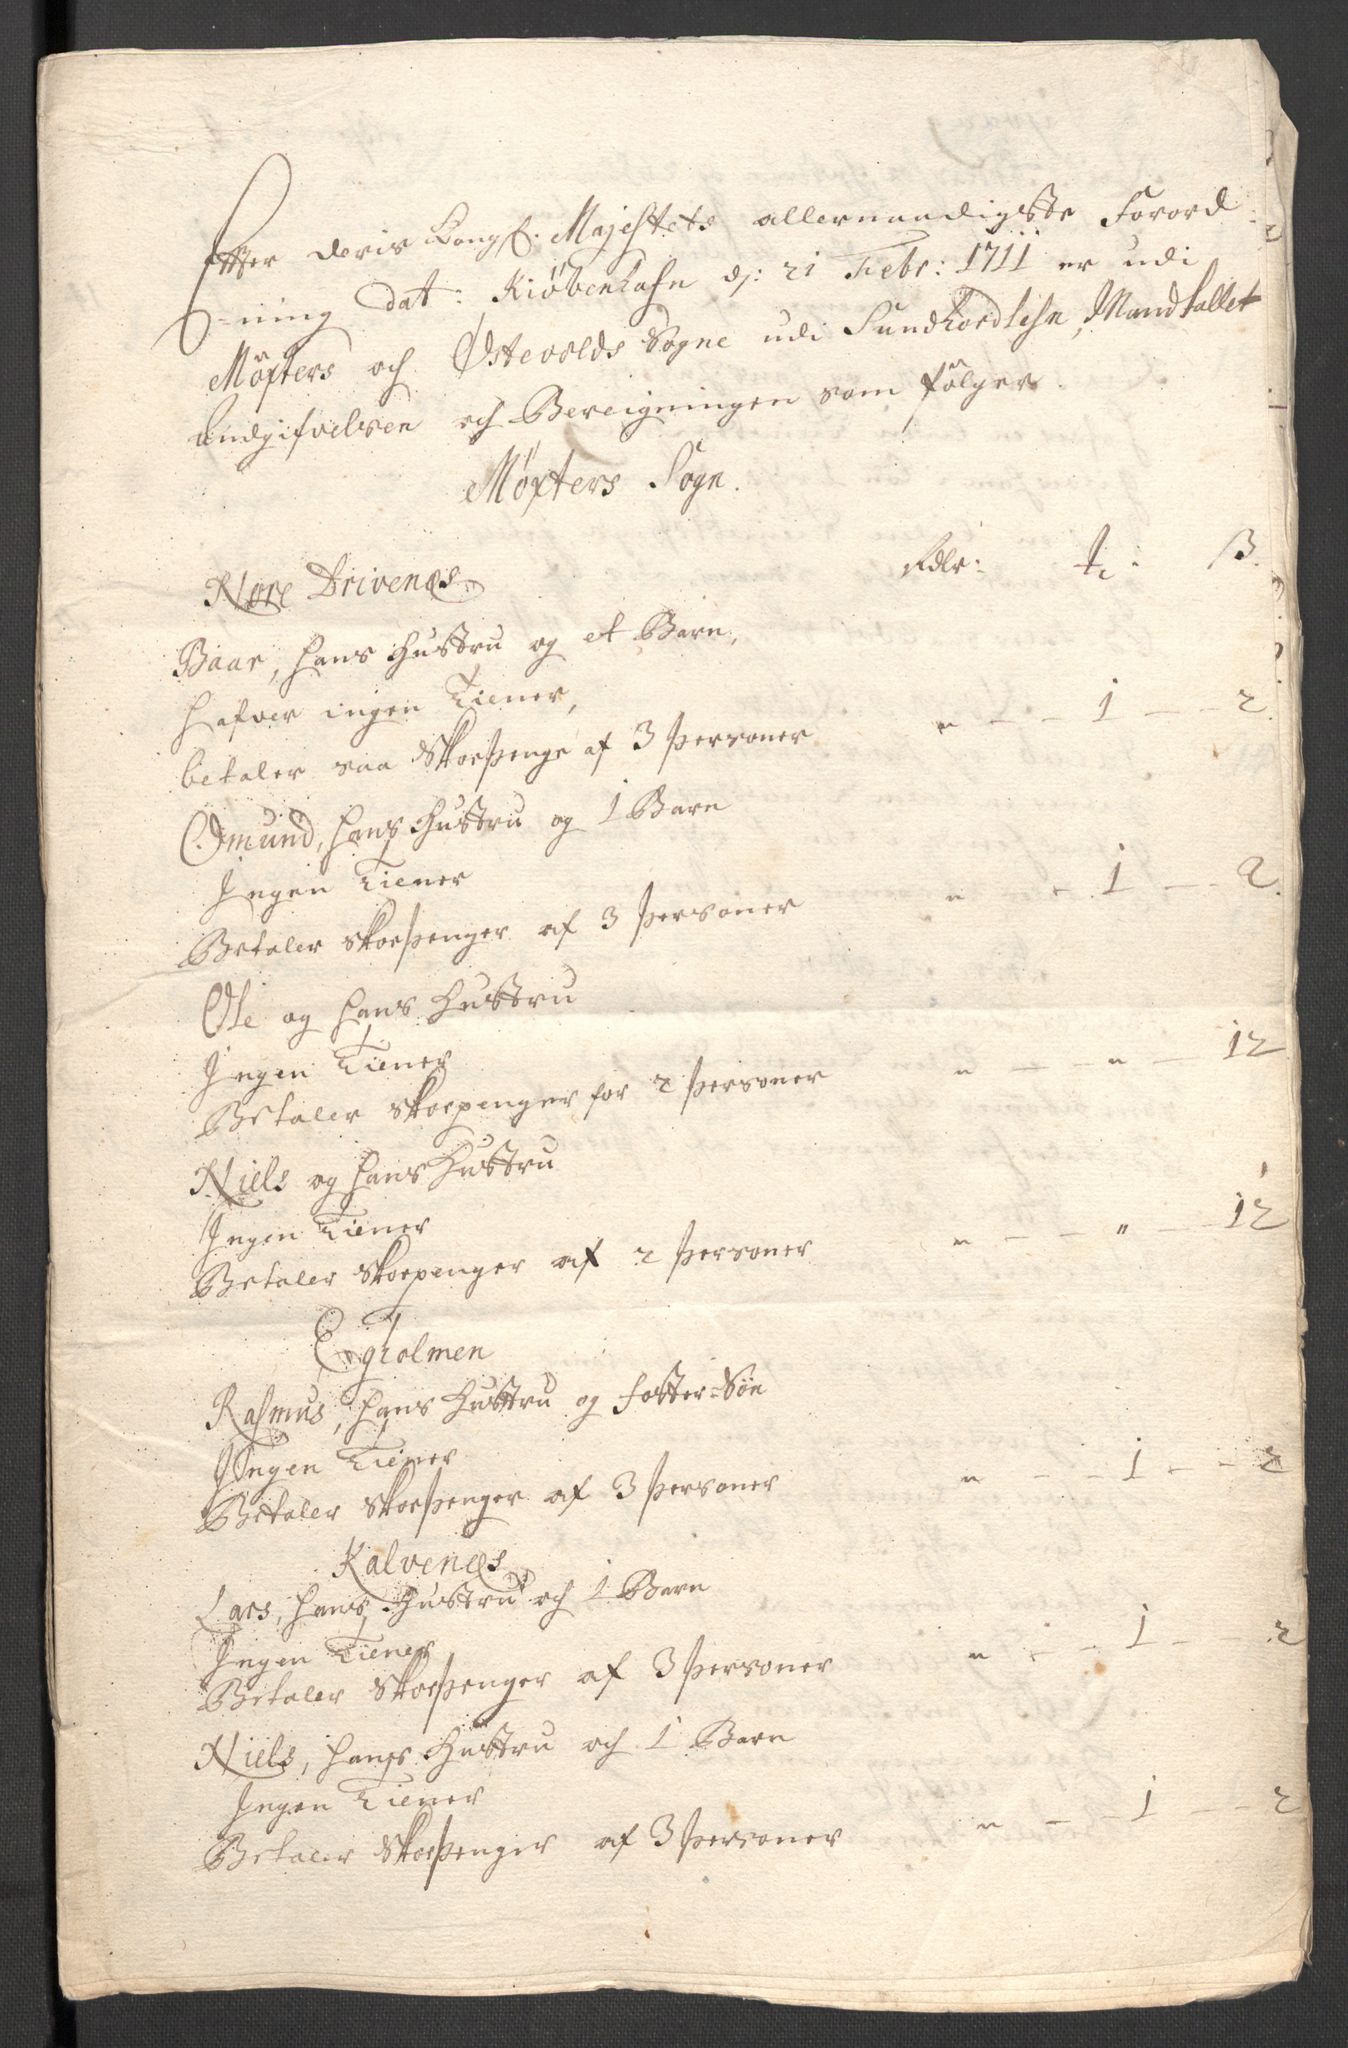 Efter deris Kongl: Majestets allernaadigste Forord
-ning dat: Kiöbenhafn dj: 21 Febr: 1711 er udi
Möxters och Østevolds Sogne udi Sundhordlehn, Mandtallet
Andgifvelsen och Bereigningen som fölger
Möxters Sogn.
Nore Drivenæs Rdlr: ꝶ: β.
Baar, hans Hustru og et Barn,
hafver ingen Tiener,
betaler saa Skoepenge af 3 Personer " - - 1 - - 2.
Omund, hans Hustru og 1 Barn
Ingen Tiener
Betaler skoepenger af 3 Personer " - 1 - - 2.
Ole og hans Hustru
Ingen Tiener
Betaler skoepenger for 2 Personer " - - " - 12
Niels og hans Hustru
Ingen Tiener
Betaler skoepenger af 2 Personer " - - " - - 12
Egholmen
Rasmus, hans Hustru og Foster-Søn
Ingen Tiener
Betaler skoepenger af 3 Personer " - - 1 - - 2
Kalvenæs
Lars, hans Hustru och 1 Barn
Ingen Tiener
Betaler Skoepenger af 3 Personer " - - 1 - - 2
Niels, hans Hustru och 1 Barn
Ingen Tiener
Betaler Skoepenger af 3 Personer " - - 1 - - 2